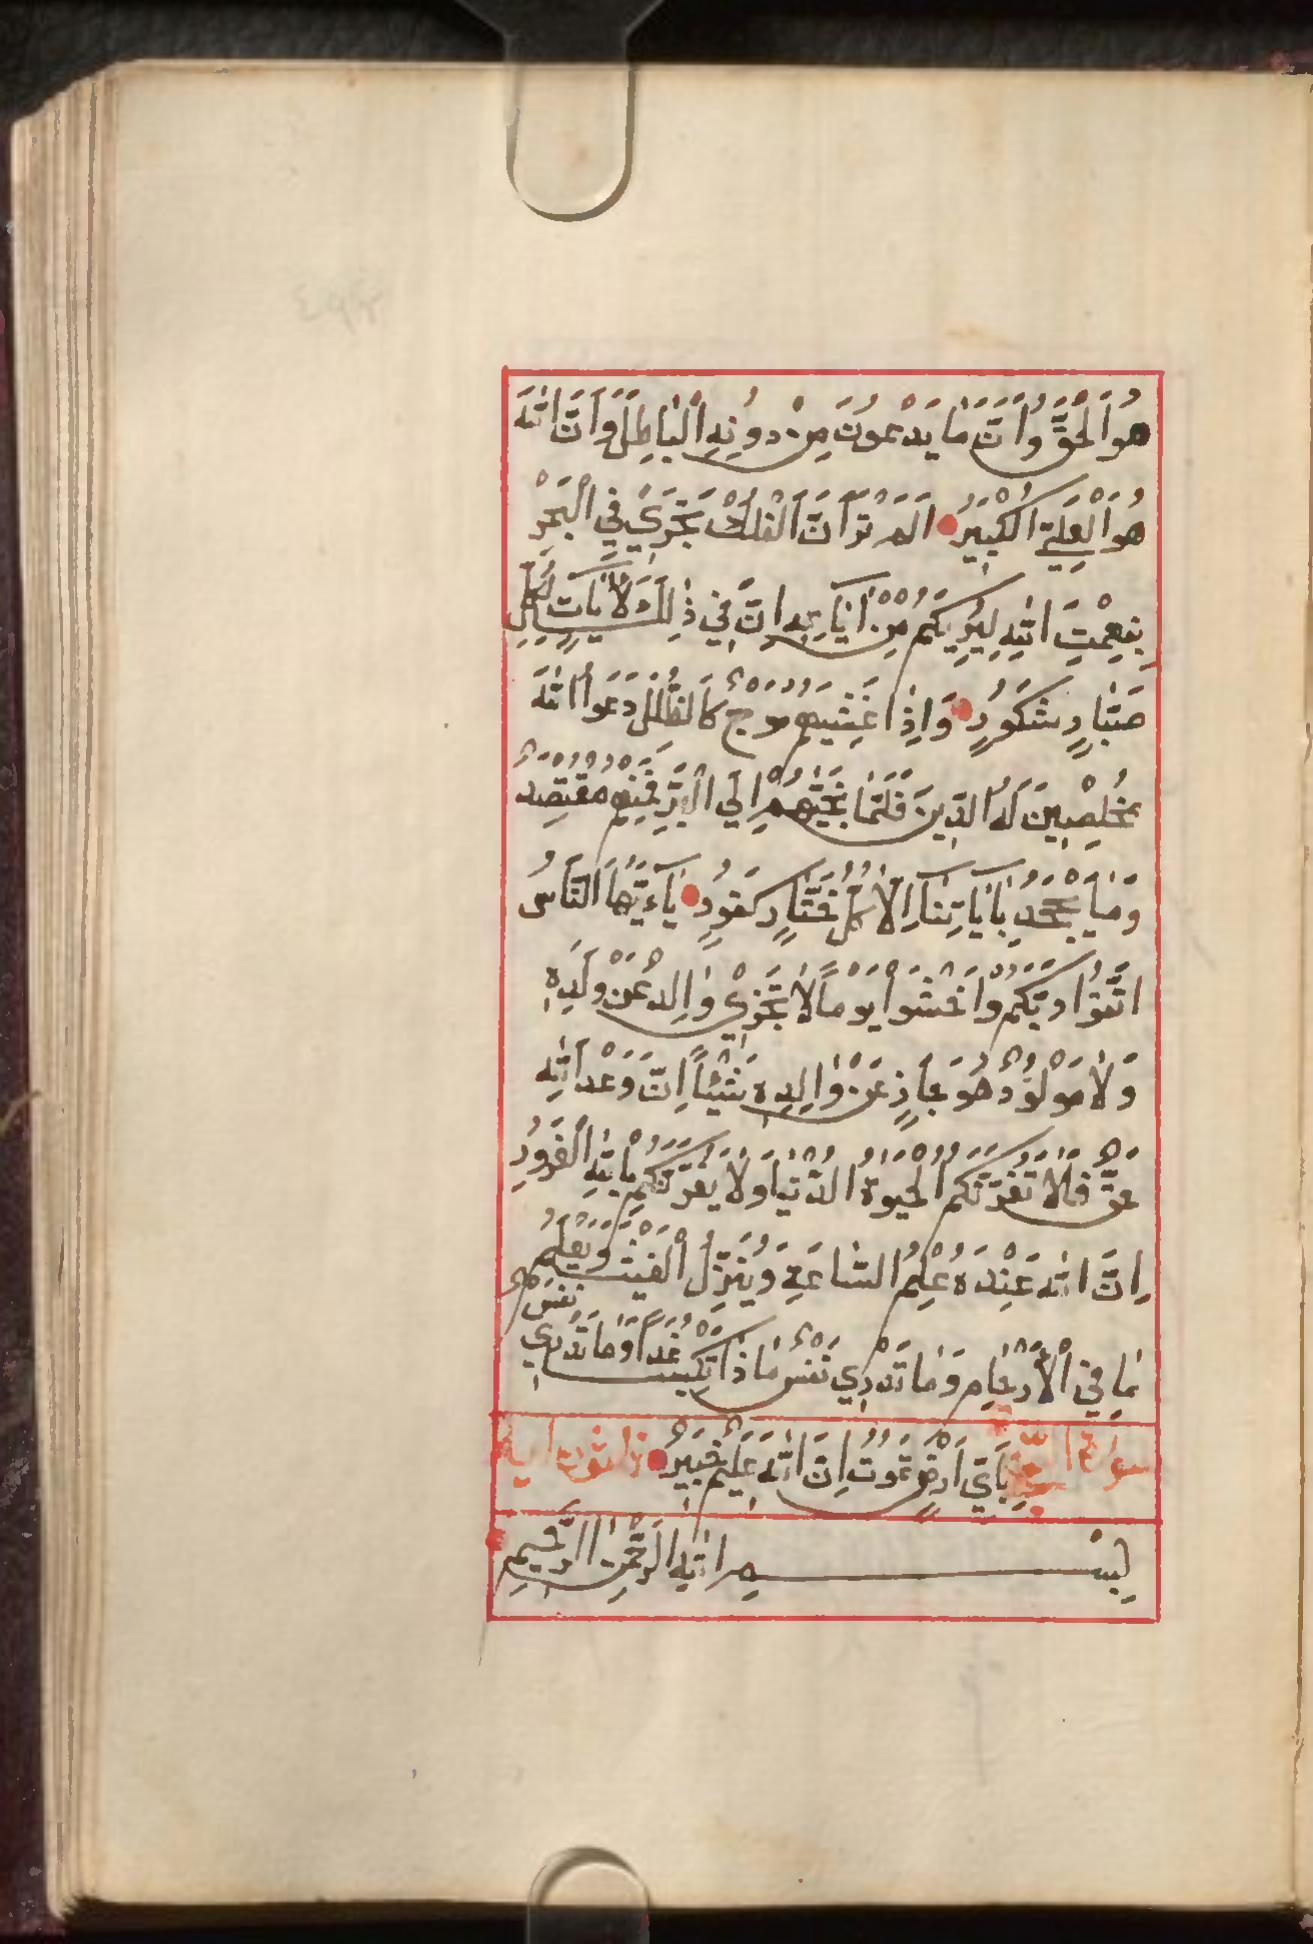 هُوَ الْحَقُّ وَاَنَّ مَا يَدْعُونَ مِنْ دُونِهِ الْبَاطِلُ وَاَنَّ اللّٰهَ
هُوَ الْعَلِيُّ الْكَبِيرُ اَلَمْ تَرَ اَنَّ الْفُلْكَ تَجْرِي فِي الْبَحْرِ
بِنِعْمَتِ اللّٰهِ لِيُرِيَكُمْ مِنْ اٰيَاتِهِ اِنَّ فِي ذٰلِكَ لَاٰيَاتٍ لِكُلِّ
صَبَّارٍ شَكُورٍ وَاِذَا غَشِيَهُمْ مَوْجٌ كَالظُّلَلِ دَعَوُا اللّٰهَ
مُخْلِصِينَ لَهُ الدِّينَ فَلَمَّا نَجّٰيهُمْ اِلَي الْبَرِّ فَمِنْهُمْ مُقْتَصِدٌ
وَمَا يَجْحَدُ بِاٰيَاتِنَا اِلَّا كُلُّ خَتَّارٍ كَفُورٍ يَآءَيُّهَا النَّاسُ
اتَّقُوا رَبَّكُمْ وَاخْشَوْا يَوْمًا لَا يَجْزِي وَالِدٌ عَنْ وَلَدِهِ
وَلَا مَوْلُودٌ هُوَ جَازٍ عَنْ وَالِدِهِ شَيْئًا اِنَّ وَعْدَ اللّٰهِ
حَقٌّ فَلَا تَغُرَّنَّكُمُ الْحَيٰوةُ الدُّنْيَا وَلَا يَغُرَّنَّكُمْ بِاللّٰهِ الْغَرُورُ
اِنَّ اللّٰهَ عِنْدَهُ عِلْمُ السَّاعَةِ وَيُنَزِّلُ الْغَيْثَ وَيَعْلَمُ
مَا فِي الْاَرْحَامِ وَمَا تَدْرِي نَفْسٌ مَاذَا تَكْسِبُ غَدًا وَمَا تَدْرِي نَفْسٌ
بِاَيِّ اَرْضٍ تَمُوتُ اِنَّ اللّٰهَ عَلِيمٌ خَبِيرٌ
بِسْمِ اللّٰهِ الرَّحْمٰنِ الرَّحِيمِ